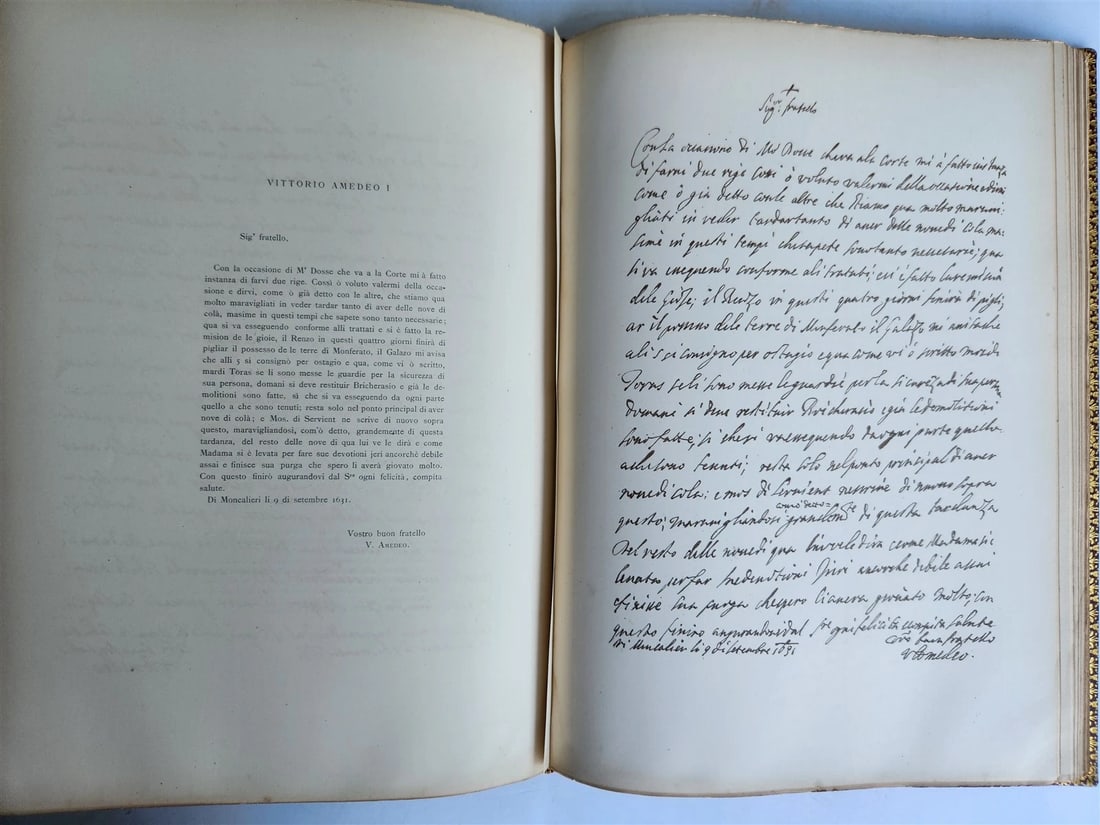 VITTORIO AMEDEO I
Sigr fratello,
Con la occasione di Mr Dosse che va a la Corte mi à fatto
instanza di farvi due rige. Cossì ò voluto valermi della occa-
sione e dirvi, come ò già detto con le altre, che stiamo quà
molto maravigliati in veder tardar tanto di aver delle nove di
colà, masime in questi tempi che sapete sono tanto necessarie;
qua si va esseguendo conforme alli trattati e si è fatto la re-
mision de le gioie, il Renzo in questi quatro giorni finirà di
pigliar il possesso de le terre di Monferato, il Galazo mi avisa
che alli 5 si consignò per ostagio e qua, come vi ò scritto,
mardi Toras se li sono messe le guardie per la sicurezza di
sua persona, domani si deve restituir Bricherasio e già le de-
molitioni sono fatte, sì che si va esseguendo da ogni parte
quello a che sono tenuti; resta solo nel ponto principal di aver
nove di colà; e Mos. di Servient ne scrive di nuovo sopra
questo, maravigliandosi, com'ò detto, grandemente di questa
tardanza, del resto delle nove di qua lui ve le dirà e come
Madama si è levata per fare sue devotioni jeri ancorchè debile
assai e finisce sua purga che spero li averà giovato molto.
Con questo finirò augurandovi dal Sre ogni felicità, compita
salute.
Di Moncalieri li 9 di setembre 1631.
Vostro buon fratello
V. AMEDEO.
Sigor fratello
Con la occasione di Mr Dosse che va a la corte mi à fatto instanza
di farvi due rige Cossi ò voluto valermi della occasione e dirvi
come ò già detto con le altre che stiamo qua molto maravi-
gliati in veder tardar tanto di aver delle nove di cola ma-
sime in questi tempi che sapete sono tanto necessarie; qua
si va esseguendo conforme ali tratati; e si è fatto la remision
dele gioie; il Renzo in questi quatro giorni finirà di pigli-
ar il possesso dele terre di Monferato il Galazo mi avisa che
ali 5 si consigno per ostagio e qua come vi ò scritto mardi
Toras se li sono messe le guardie per la sicurezza di sua persona
domani si deve restituir Bricherasio e gia le demolitioni
sono fatte, si che si va esseguendo da ogni parte quello
a che sono tenuti; resta solo nel ponto principal di aver
nove di cola; e mos di Servient ne scrive di nuovo sopra
como detto
questo; maravigliandosi grandemte di questa tardanza
Del resto delle nove di qua lui ve le dira e come Madama si e
levata per far sue devotioni Jeri ancorche debile assai
e finisse sua purga che spero li avera giovato molto; con
questo finiro augurandovi dal Sre ogni felicita compita salute
Di Moncalieri li 9 di setembre 1631
vro buon fratello
V Amedeo.